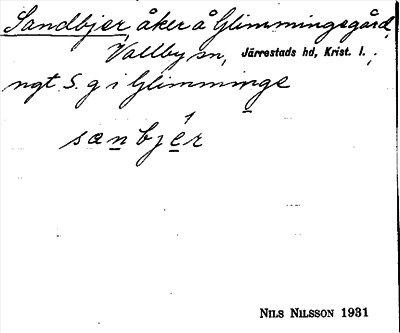 Sandbjer, åker å Glimmingegård,
Vallby sn, Järrestads hd, Krist. l.,
ngt S. g i Glimminge
sanbjér
NILS NILSSON 1931